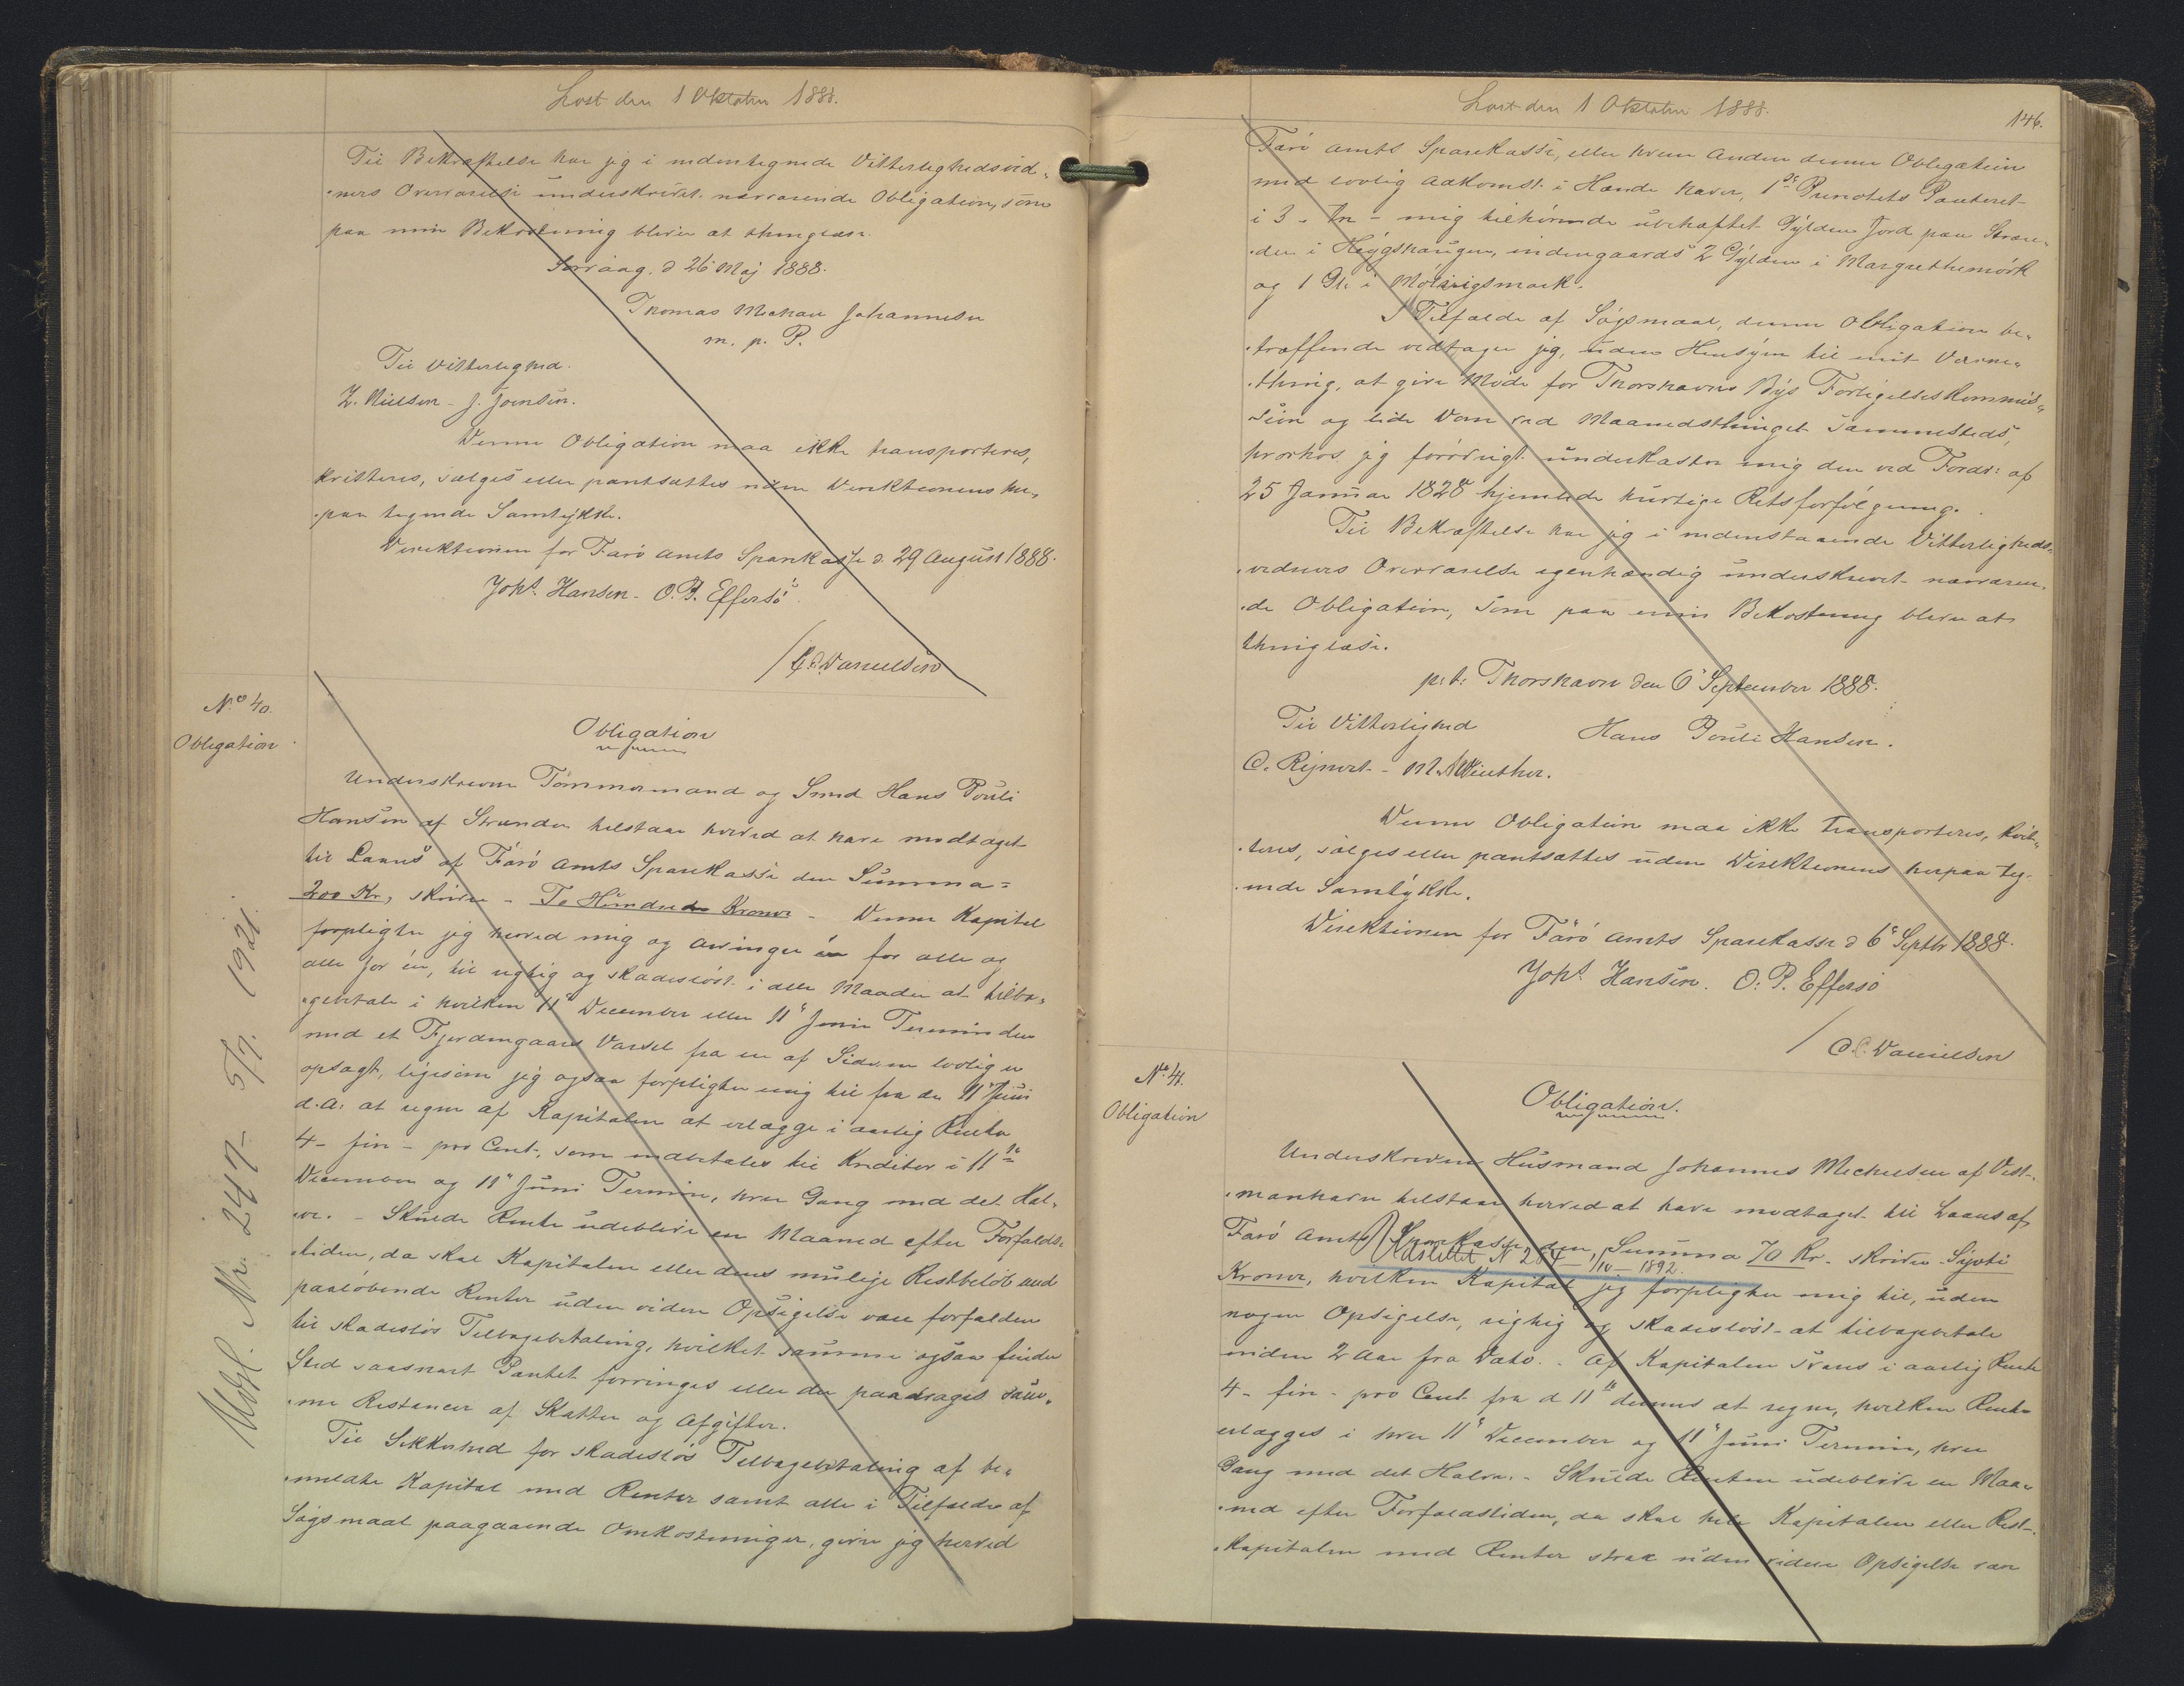 Læst den 1 Oktober 1888.
Til Bekræftelse har jeg i nedentegnede Vitterlighedsvid-
-ners Overværelse underskrevet nærværende Obligation, som
paa min Bekostning bliver at thinglæse.
Sørvaag, d 26' Maj 1888.
Thomas Michael Johannesen
m. p. P.
Til Vitterlighed.
Z. Nielsen - J. Joensen.
Denne Obligation maa ikke transporteres,
kvitteres, sælges eller pantsættes uden Direktionens her-
-paa tegnede Samtykke.
Direktionen for Færø Amts Sparekasse d. 29 August 1888.
Joh.s Hansen - O. P. Effersö
/ C.C. Danielsen
No 40.
Obligation
Obligation
Underskrevne Tømmermand og Smed Hans Pouli
Hansen af Strænder tilstaar herved at have modtaget
til Laans af Færö Amts Sparekasse den Summa =
200 Kr, skriver - To Hundrede Kroner - Denne Kapital
forpligter jeg herved mig og Arvinger én for alle og
alle for én, til rigtig og skadesløst i alle Maader at tilba-
-gebetale i hvilken 11' December eller 11' Juni Termin den
med et Fjerdingaars Varsel fra en af Siderne lovlig er
opsagt, ligesom jeg ogsaa forpligter mig til fra den 11' Juni
d. A: at regne af Kapitalen at erlægge i aarlig Rente
4 - fire - pro Cent, som indbetales til Kreditor i 11te
December og 11' Juni Termin, hver Gang med det Hal-
-ve. - Skulde Rente udeblive en Maaned efter Forfalds-
-tiden, da skal Kapitalen eller dens mulige Restbeløb med
paaløbende Renter uden videre Opsigelse være forfalden
til skadesløs Tilbagebetaling, hvilket samme ogsaa finder
Sted saasnart Pantet forringes eller der paadrages sam-
-me Restancer af Skatter og Afgifter.
Til Sikkerhed for skadesløs Tilbagebetaling af be-
-meldte Kapital med Renter samt alle i Tilfælde af
Søgsmaal paagaaende Omkostninger, giver jeg herved
Udsl. Nr. 247 - 5/7. 1921.
Læst den 1 Oktober 1888.
146.
Færö Amts Sparekasse, eller hvem Anden denne Obligation
med lovlig Adkomst i Hænde haver, 1ste Prioritets Panteret
i 3 - tre - mig tilhørende ubehæftet Gylden Jord paa Stræn-
-der i Høygshaugen, indengaards 2 Gylden i Margrethemörk
og 1 Gl. i
I Tilfælde af Søgsmaal, denne Obligation be-
-træffende vedtager jeg, uden Hensyn til mit Værne-
-thing, at give Møde for Thorshavns Bys Forligelseskommis-
-sion og lide Dom ved Maanedsthinget sammesteds,
hvorhos jeg forøvrigt underkaster mig den ved Fords: af
25 Januar 1828 hjemlede hurtige Retsforfølgning.
Til Bekræftelse har jeg i nedenstaaende Vitterligheds-
-vidners Overværelse egenhændig underskrevet nærværen-
-de Obligation, som paa min Bekostning bliver at
thinglæse.
p: t: Thorshavn den 6' September 1888.
Til Vitterlighed
Hans Pouli Hansen.
C. Rejnert - M. Winther.
Denne Obligation maa ikke transporteres, kvit-
-teres, sælges eller pantsættes uden Direktionens herpaa teg-
-nede Samtykke.
Direktionen for Færö Amts Sparekasse d 6' Septbr 1888.
Joh.s Hansen. O. P. Effersö
/ C.C. Danielsen
No 41.
Obligation
Obligation.
Underskrevne Husmand Johannes Michelsen af Vest-
-manhavn tilstaar herved at have modtaget til Laans af
Færö Amts Sparekasse den Summa 70 Kr. skriver Syvti
Udslettet N 284 - 1/10 - 1892.
Kroner, hvilken Kapital jeg forpligter mig til, uden
nogen Opsigelse, rigtig og skadesløst at tilbagebetale
inden 2 Aar fra Dato. - Af Kapitalen svares i aarlig Rente
4 - fire - pro Cent fra d 11te dennes at regne, hvilken Rente
erlægges i hver 11' December og 11' Juni Termin, hver
Gang med det Halve. - Skulde Renten udeblive en Maa-
-ned efter Forfaldstiden, da skal hele Kapitalen eller Rest-
-kapitalen med Renter strax uden videre Opsigelse være